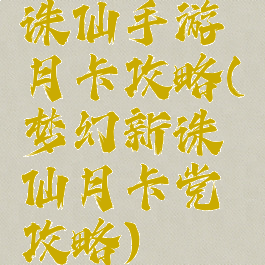 诛仙手游
月卡攻略(
梦幻新诛
仙月卡党
攻略)